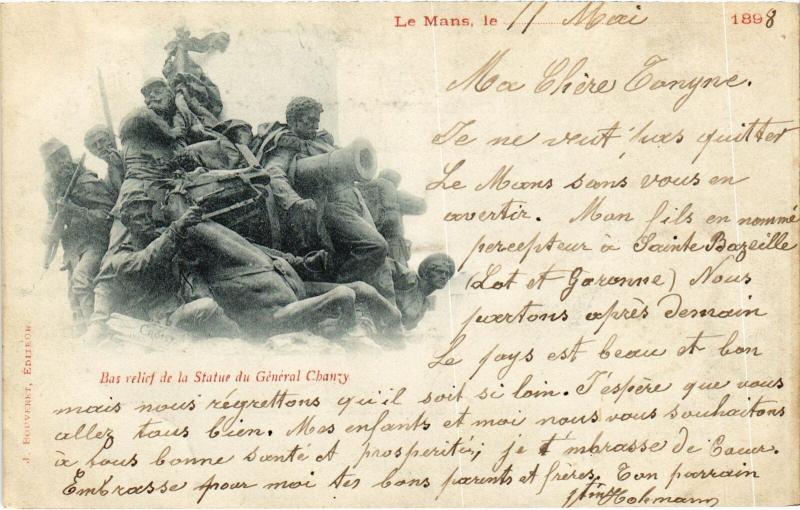 Le Mans, le 11 Mai 1898
Ma Chère Tonyne.
Je ne veut pas quitter
Le Mans sans vous en
avertir. Mon fils en nommé
percepteur à Sainte Bazeille
(Lot et Garonne) Nous
partons après demain
Le pays est beau et bon
mais nous régrettons qu'il soit si loin. J'espère que vous
allez tous bien. Mes enfants et moi nous vous souhaitons
à tous bonne santé et prosperité; je t'mbrasse de Coeur.
Embrasse pour moi tes bons parents et frères. Ton parrain
Hohmann
Bas relief de la Statue du Général Chanzy
J. BOUVERET, ÉDITEUR